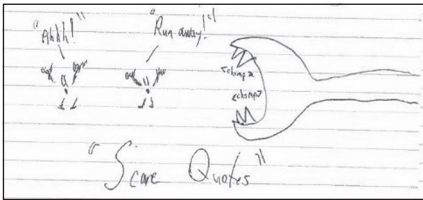 "Ahhh!"
"Run away!"
*chomp*
*chomp*
"Scare Quotes"